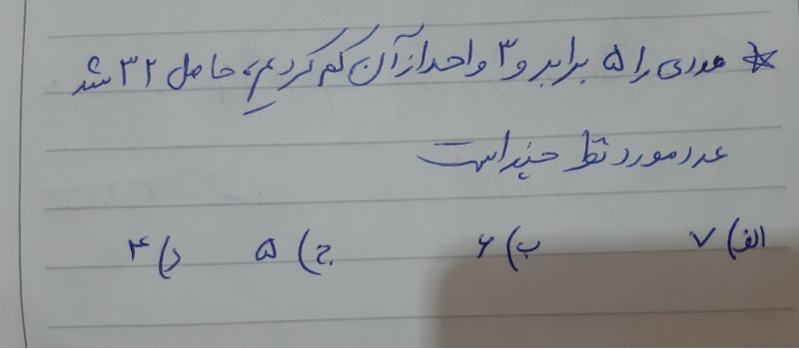 * عددی را ۵ برابر و ۳ واحد از آن کم کردیم، حاصل ۳۲ شد
عدد مورد نظر چند است
الف) ۷ ب) ۶ ج) ۵ د) ۴